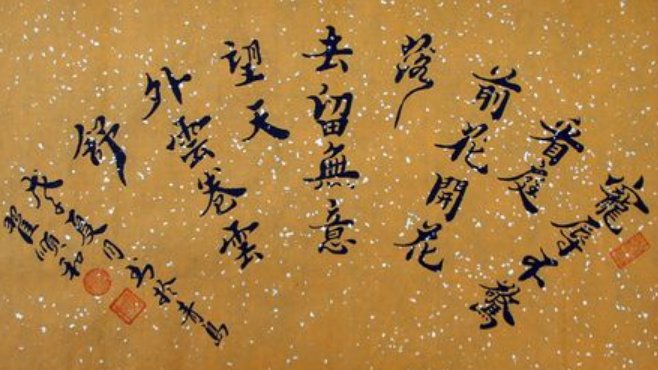 寵辱不驚
看庭
前花開花
落
去留無意
望天
外雲卷雲
舒
戊子夏月书於青島
翟順和